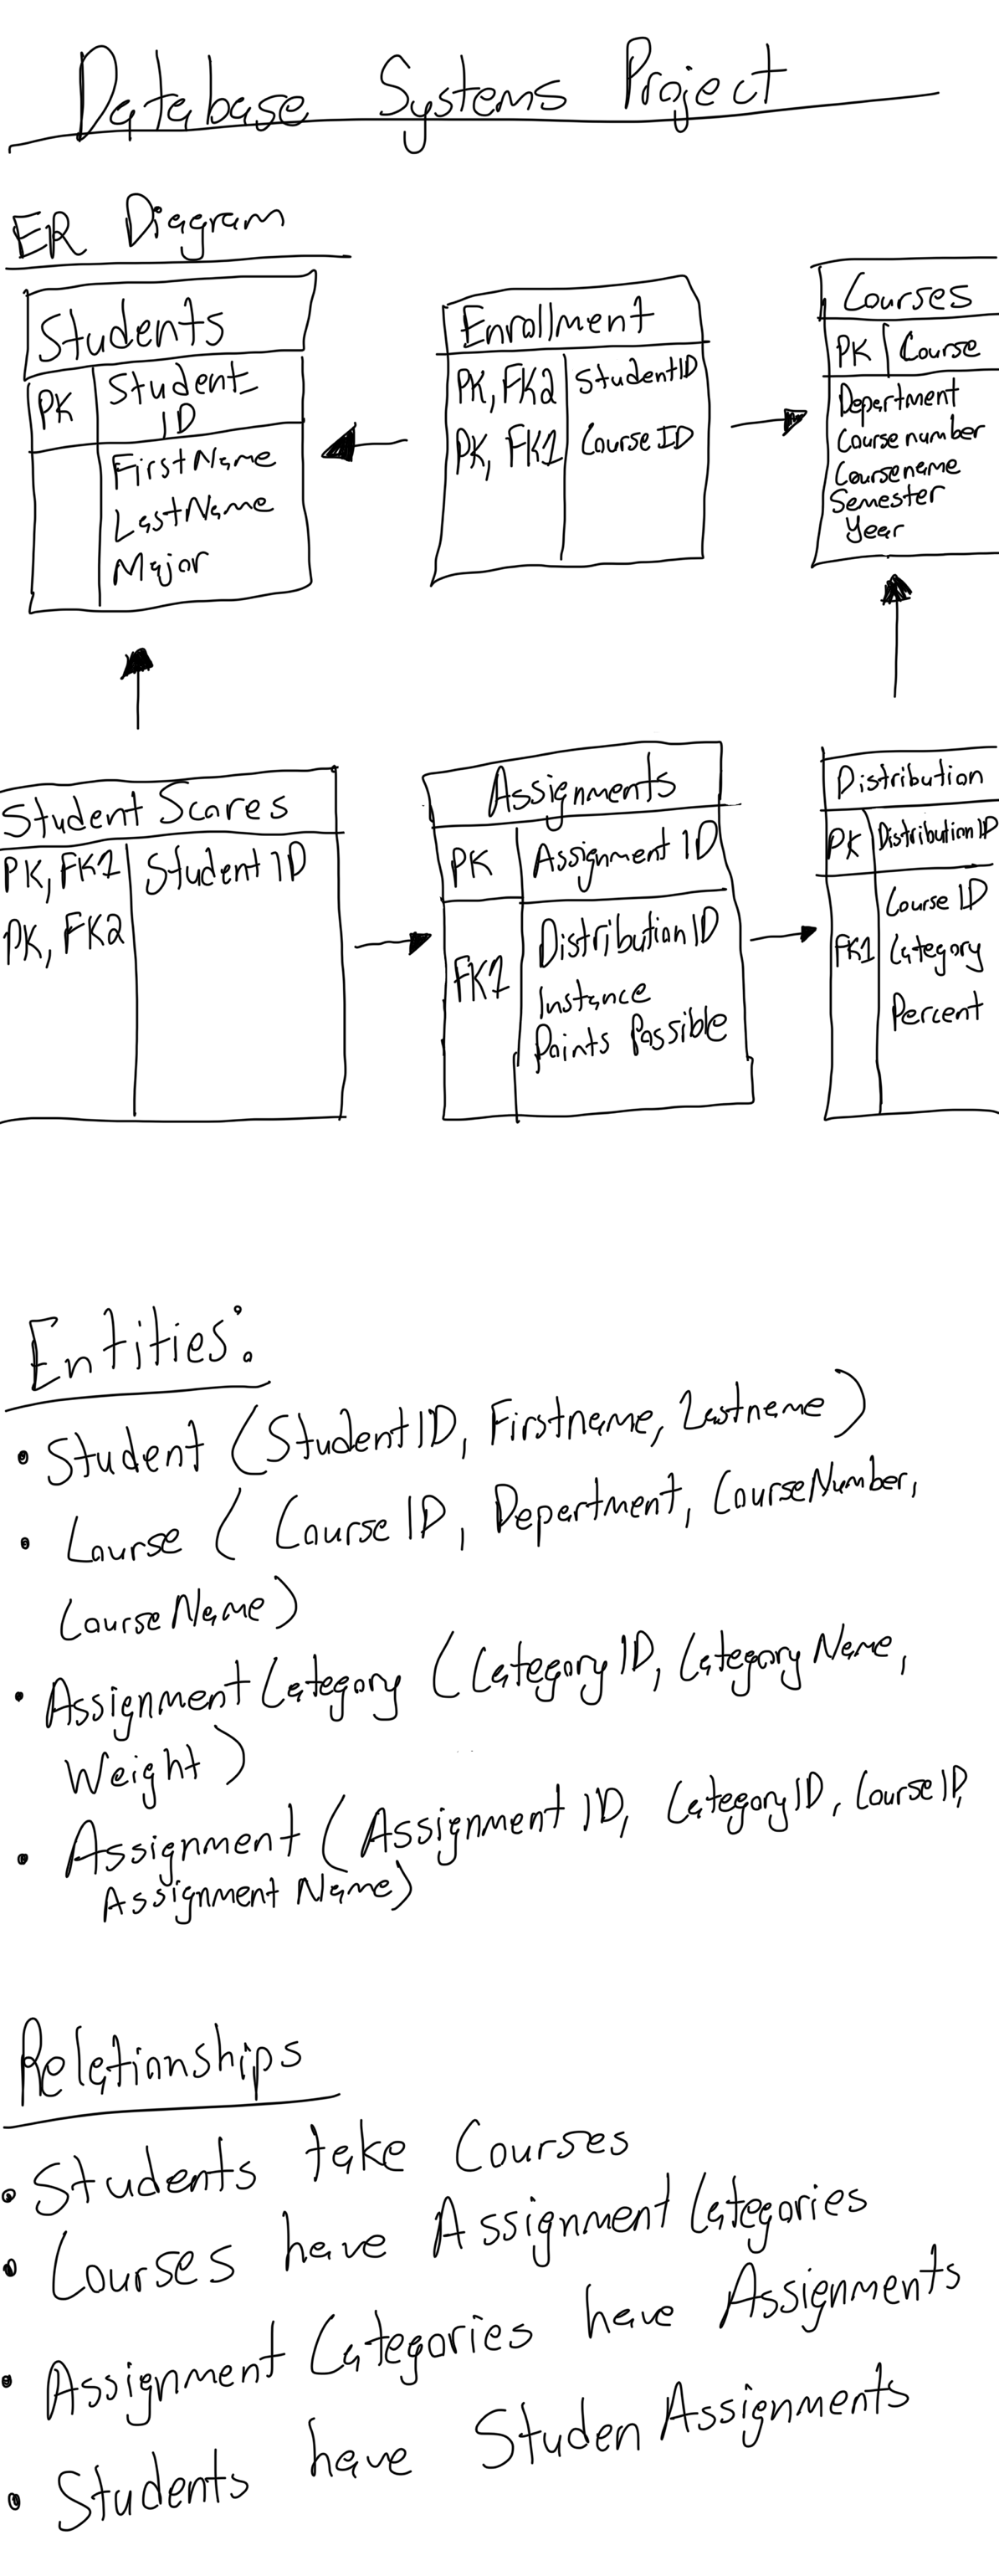 Database Systems Project
ER Diagram
Students
PK Student
ID
FirstName
LastName
Major
Enrollment
PK, FK2 StudentID
PK, FK1 Course ID
Courses
PK Course
Department
Course number
Coursename
Semester
Year
Student Scores
PK, FK1 Student ID
PK, FK2
Assignments
PK Assignment ID
Distribution ID
FK1
Instance
Points Possible
Distribution
PK Distribution ID
Course ID
FK1 Category
Percent
Entities:
• Student (StudentID, Firstname, Lastname)
• Course ( Course ID, Department, CourseNumber,
CourseName)
• Assignment Category (CategoryID, Category Name,
Weight)
• Assignment (Assignment ID, CategoryID, CourseID,
Assignment Name)
Relationships
• Students take Courses
• Courses have Assignment Categories
• Assignment Categories have Assignments
• Students have Studen Assignments